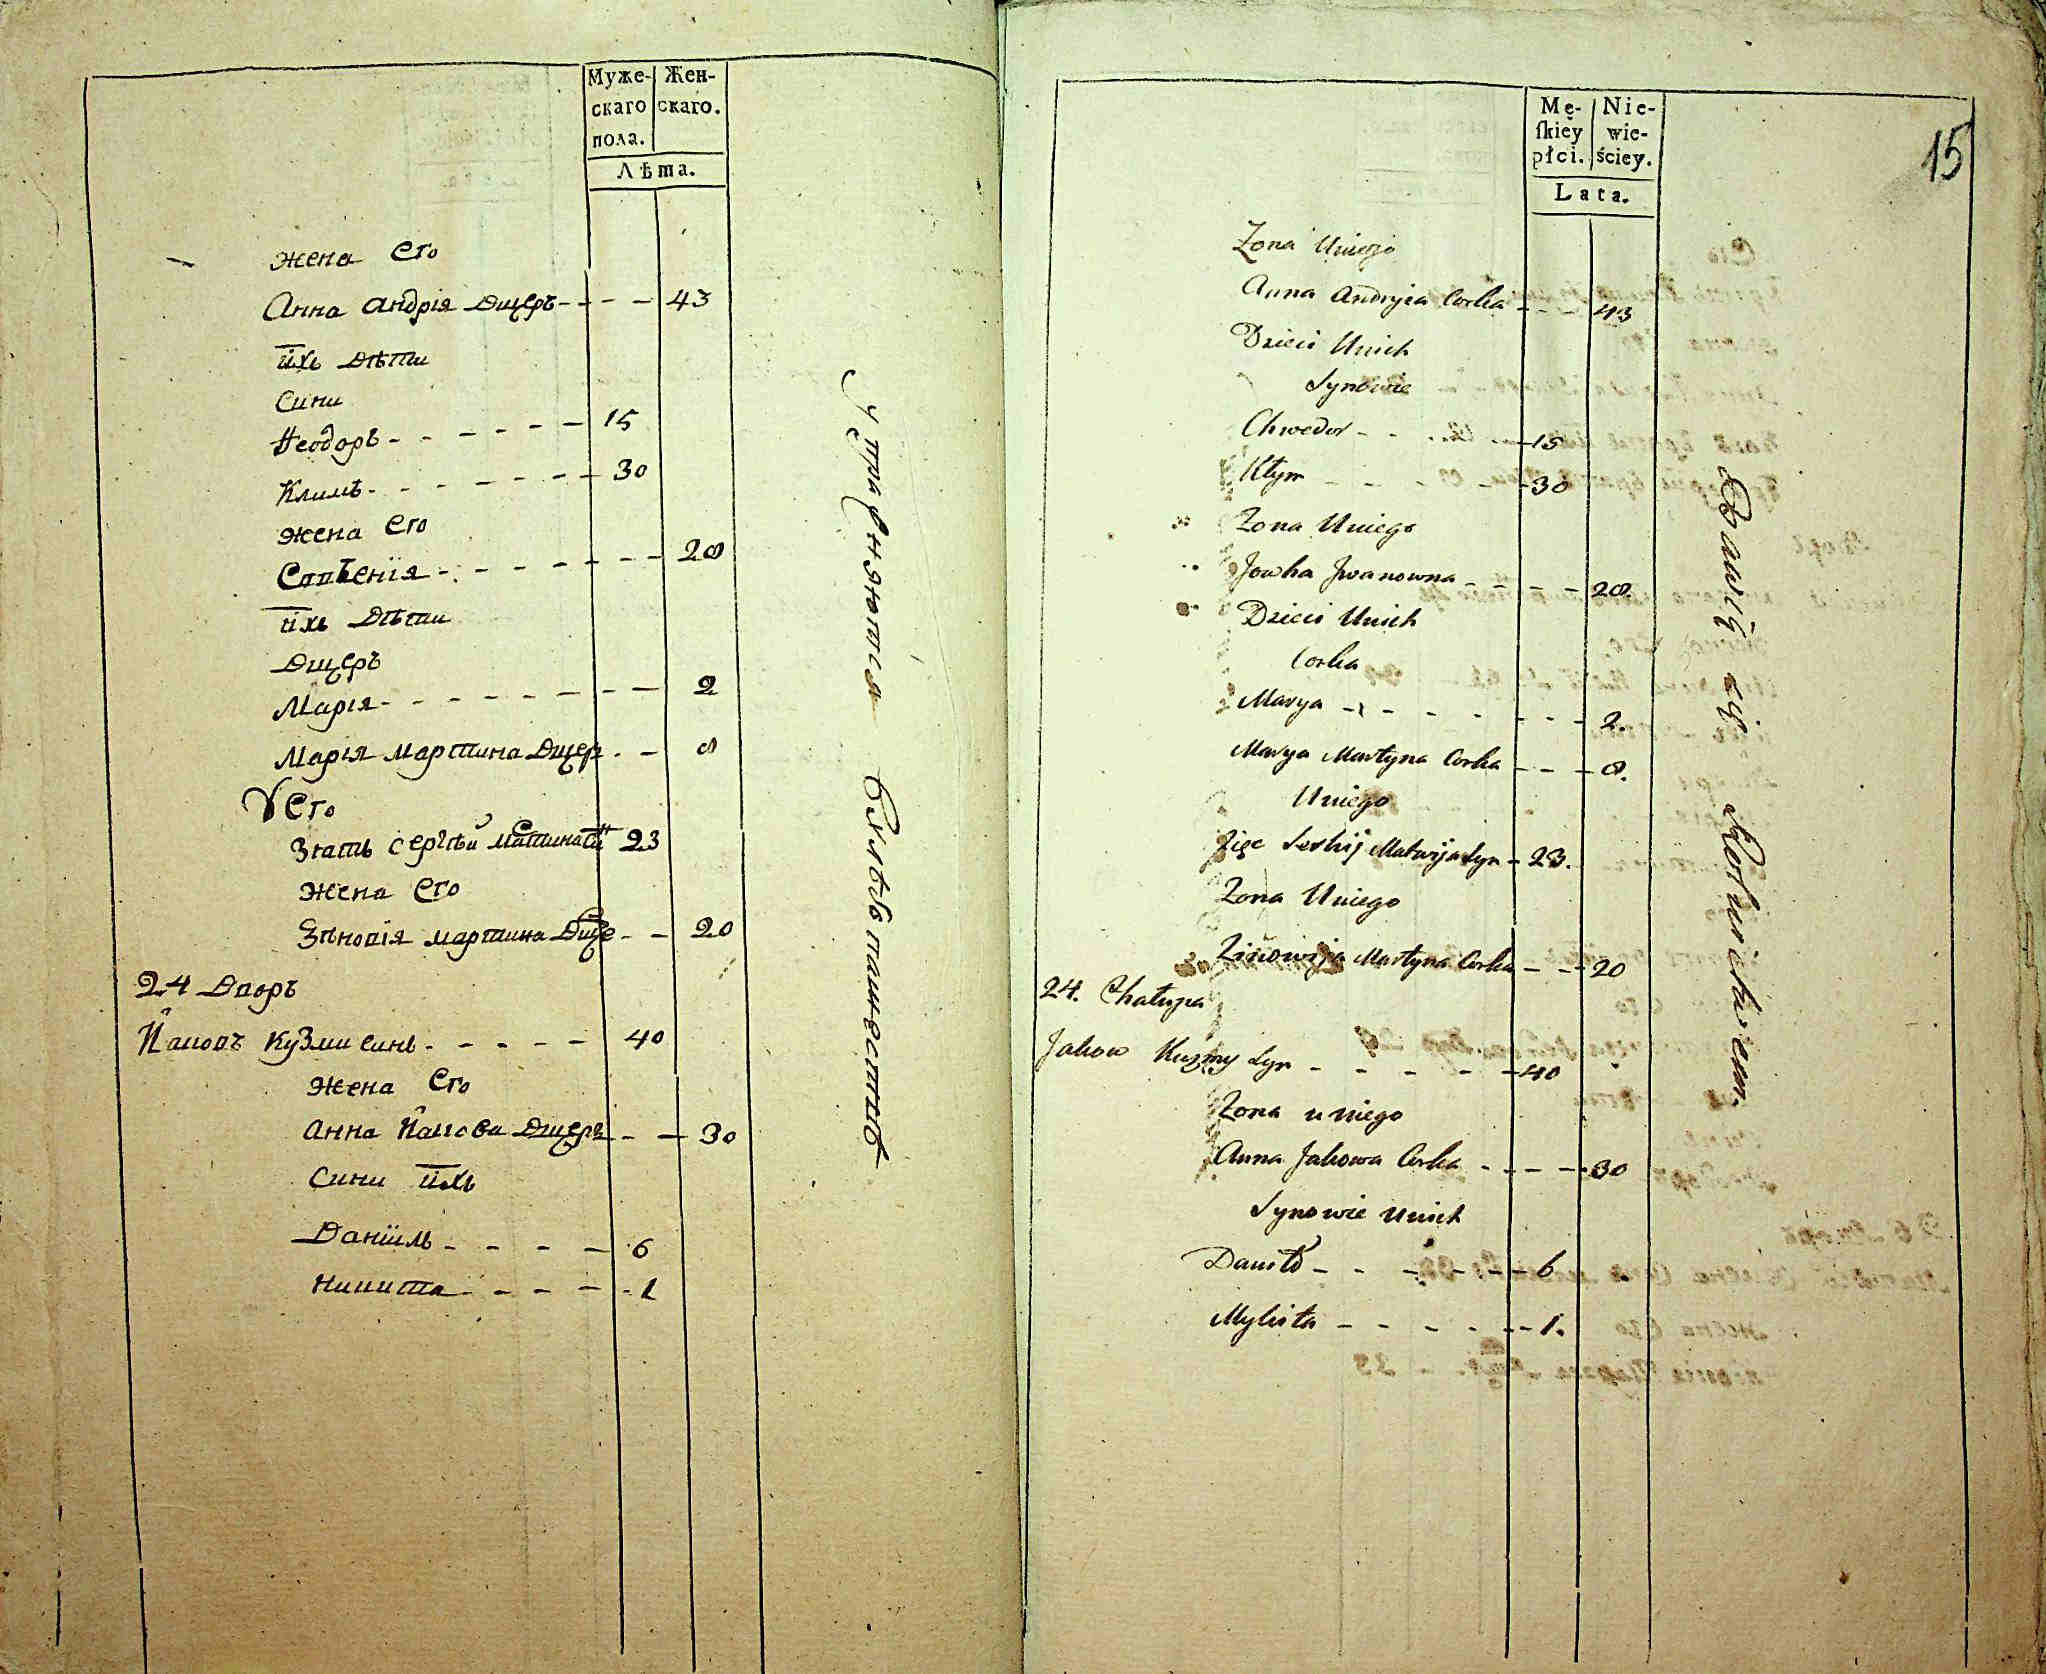 Муже-
скаго
пола.
Жен-
скаго.
Лѣта.
жена его
Анна Андрія дщерь - - - - 43
ихъ дѣти
Сини
Ѳеодоръ - - - - - - 15
Климъ - - - - - - 30
жена его
- - - - - - 28
ихъ дѣти
Дщерь
Марія - - - - - - - 2
Марія Мартина дщер - - 8
У его
Зять Сергѣй 23
жена его
Зѣновія Мартина дще - - 20
24 Дворъ
Іаковъ Кузми синъ - - - - - 40
жена его
Анна Іакова дщерь - - 30
Сини ихъ
Даніилъ - - - - 6
Никита - - - - 1
упражняются хлѣбопашествомъ
15
Mę-
ſkiey
płci.
Nie-
wie-
ściey.
Lata.
Zona Uniego
Anna Andryia Corka - - - 43
Dzieci Unich
Synowie
Chwedor - - - - 15
Kłym - - - - - 30
Zona Uniego
Jowka Jwanowna - - - - 28
Dzieci Unich
Corka
Marya - - - - - - - - 2.
Marya Martyna Corka - - - 8.
Uniego
Zięc Serhij Matwija Syn - 23.
Zona Uniego
Zinowija Martyna Corka - - - 20
24. Chałupa
Jakow Kuzmy Syn - - - - - 40
Zona u niego
Anna Jakowa Corka - - - - 30
Synowie Unich
Daniło - - - - - - 6
Mykita - - - - - - 1.
Bawią się Rolnictwem.